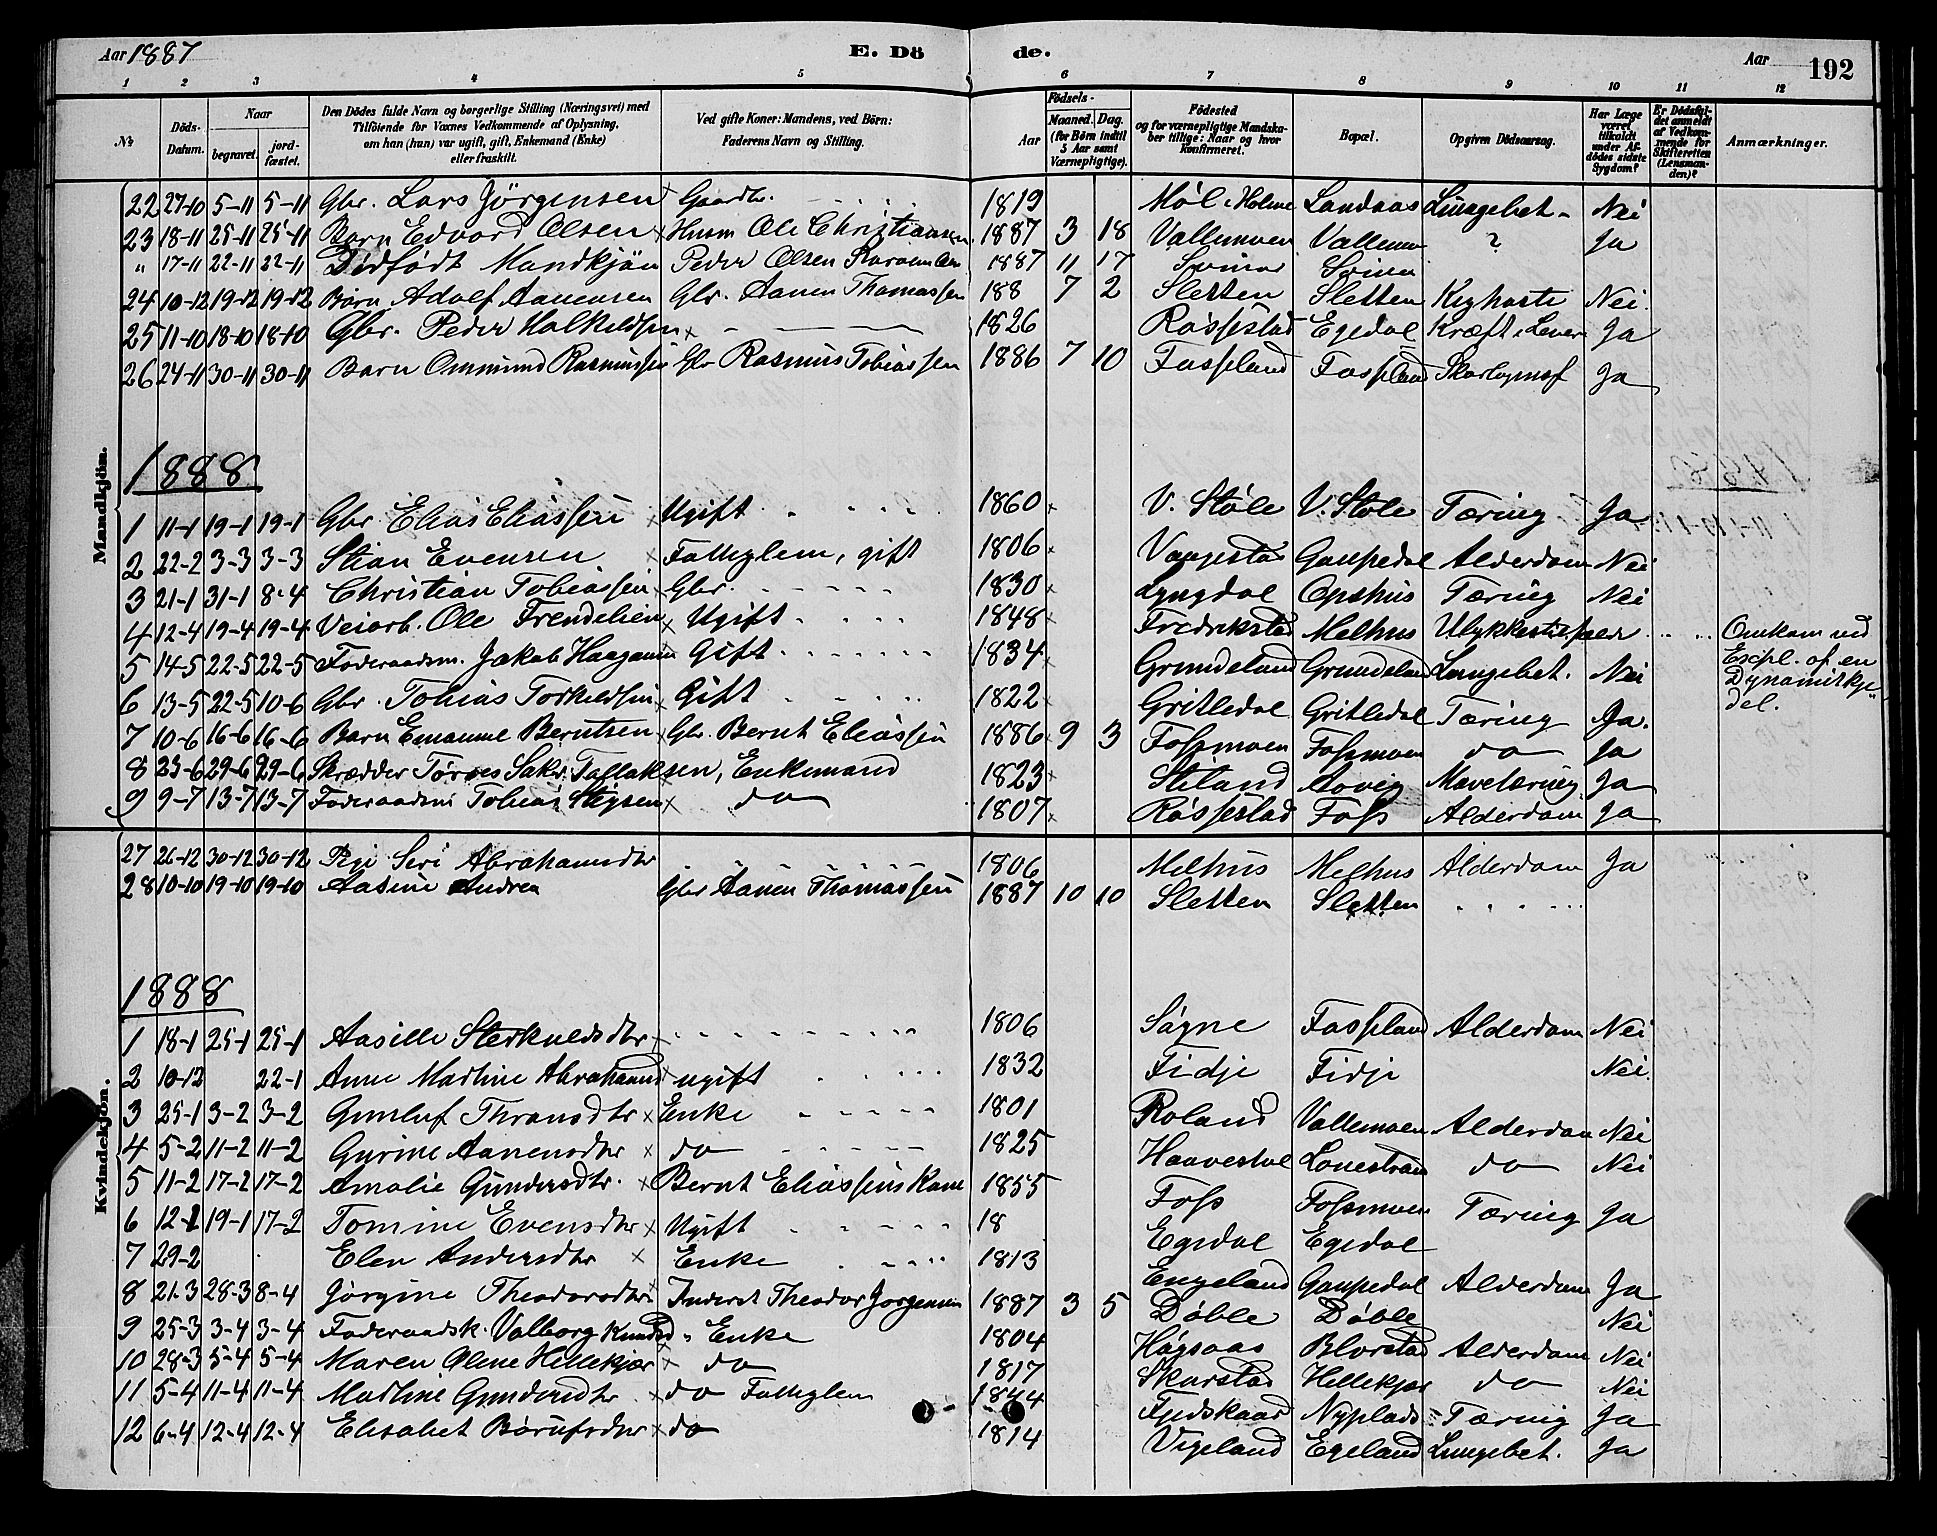 Aar 1887 E. Dö de. Aar 192
1 2 3 4 5 6 7 8 9 10 11 12
№ Döds-Datum. Naar begravet. jordfæstet. Den Dödes fulde Navn og borgerlige Stilling (Næringsvei) med Tilföiende for Voxnes Vedkommende af Oplysning, om han (hun) var ugift, gift, Enkemand (Enke) eller fraskilt. Ved gifte Koner: Mandens, ved Börn: Faderens Navn og Stilling. Födsels- Aar Maaned. Dag. (for Börn indtil 5 Aar samt Værnepligtige). Födested og for værnepligtige Mandskaber tillige: Naar og hvor konfirmeret. Bopæl. Opgiven Dödsaarsag. Har Læge været tilkaldt under Afdödes sidste Sygdom? Er Dödsfaldet anmeldt af Vedkommende for Skifteretten (Lensmanden)? Anmærkninger.
Mandkjön.
22 27-10 5-11 5-11 Gbr. Lars Jörgensen Gaardbr. 1819 Møl i Holme Landaas Lungebet. Nei
23 18-11 25-11 25-11 Barn Edvard Olsen Husm Ole Christiansen 1887 3 18 Vallemoen Vallemoen ? Ja
" 17-11 22-11 22-11 Dödfödt Mandkjön Peder Olsen 1887 11 17 Svinor Svinor
24 10-12 19-12 19-12 Barn Adolf Aanensen Gbr. Aanen Thomassen 188 7 2 Sletten Sletten Kighoste Nei
25 11-10 18-10 18-10 Gbr. Peder Halkeldsen 1826 Røssestad Egedal Kræft i Lever Ja
26 24-11 30-11 30-11 Barn Ommund Rasmussen Gbr Rasmus Tobiassen 1886 7 10 Fasseland Fasseland Ja
1888
1 11-1 19-1 19-1 Gbr. Elias Eliassen Ugift 1860 V. Støle V. Støle Tæring Ja
2 22-2 3-3 3-3 Stian Evensen Fattiglem, gift 1806 Vaagestad Gaupedal Alderdom Nei
3 21-1 31-1 8-4 Christian Tobiassen Gbr. 1830 Lyngdal Opsahus Tæring Nei
4 12-4 19-4 19-4 Veiarb. Ole Frendelien Ugift 1848 Fredrikstad Melhus Ulykkestilfælde Omkom ved Expl. af en Dynamitkjedel.
5 14-5 22-5 22-5 Føderaadsm. Jakob Haagensen Gift 1834 Grundeland Grundeland Lungebet. Nei
6 13-5 22-5 10-6 Gbr. Tobias Torkildsen Gift 1822 Gritledal Gritledal Tæring Ja.
7 10-6 16-6 16-6 Barn Emanuel Berntsen Gbr. Bernt Eliassen 1886 9 3 Fossmoen Fossmoen do Ja
8 23-6 29-6 29-6 Skrædder Tørres Sakr. Tallaksen, Enkemand 1823 Stiland Aavig Mavetæring Ja
9 9-7 13-7 13-7 Føderaadsm Tobias Stigsen do 1807 Røssestad Foss Alderdom Ja
Kvindekjön.
27 26-12 30-12 30-12 Pige Seri Abrahamsdtr 1806 Melhus Melhus Alderdom Ja
28 10-10 19-10 19-10 Aasine Andrea Gbr Aanen Thomassen 1887 10 10 Sletten Sletten
1888
1 18-1 25-1 25-1 Aasille Sterkuldsdtr 1806 Søgne Fasseland Alderdom Nei
2 10-12 22-1 Anne Martine Abrahamsd ugift 1832 Fidje Fidje Nei.
3 25-1 3-2 3-2 Gunluf Thronsdtr Enke 1801 Roland Vallemoen Alderdom Nei
4 5-2 11-2 11-2 Gurine Aanensdtr do 1825 Haavestol Lonestran do Nei
5 11-2 17-2 17-2 Amalie Gundersdtr. Bernt Eliassens Kone 1855 Foss Fossmoen Tæring Ja
6 12-1 19-1 17-2 Tomine Evensdtr Ugift 18 Egedal Egedal
7 29-2 Elen Andersdtr Enke 1813 Engeland Gaupedal Alderdom Ja
8 21-3 28-3 8-4 Jørgine Theodorsdtr Inderst Theodor Jørgensen 1887 3 5 Døble Døble Nei
9 25-3 3-4 3-4 Føderaadsk. Valborg Knudsd. Enke 1804 Høgsaas Blørstad Alderdom Nei
10 28-3 5-4 5-4 Maren Olene Hellekjær do 1817 Skarstad Hellekjær do Nei
11 5-4 11-4 11-4 Martine Gundersdtr do Fattiglem 1844 Fudskaar Nyplads Tæring Ja
12 6-4 12-4 12-4 Elisabet Børufsdtr do 1814 Vigeland Egeland Lungebet. Ja